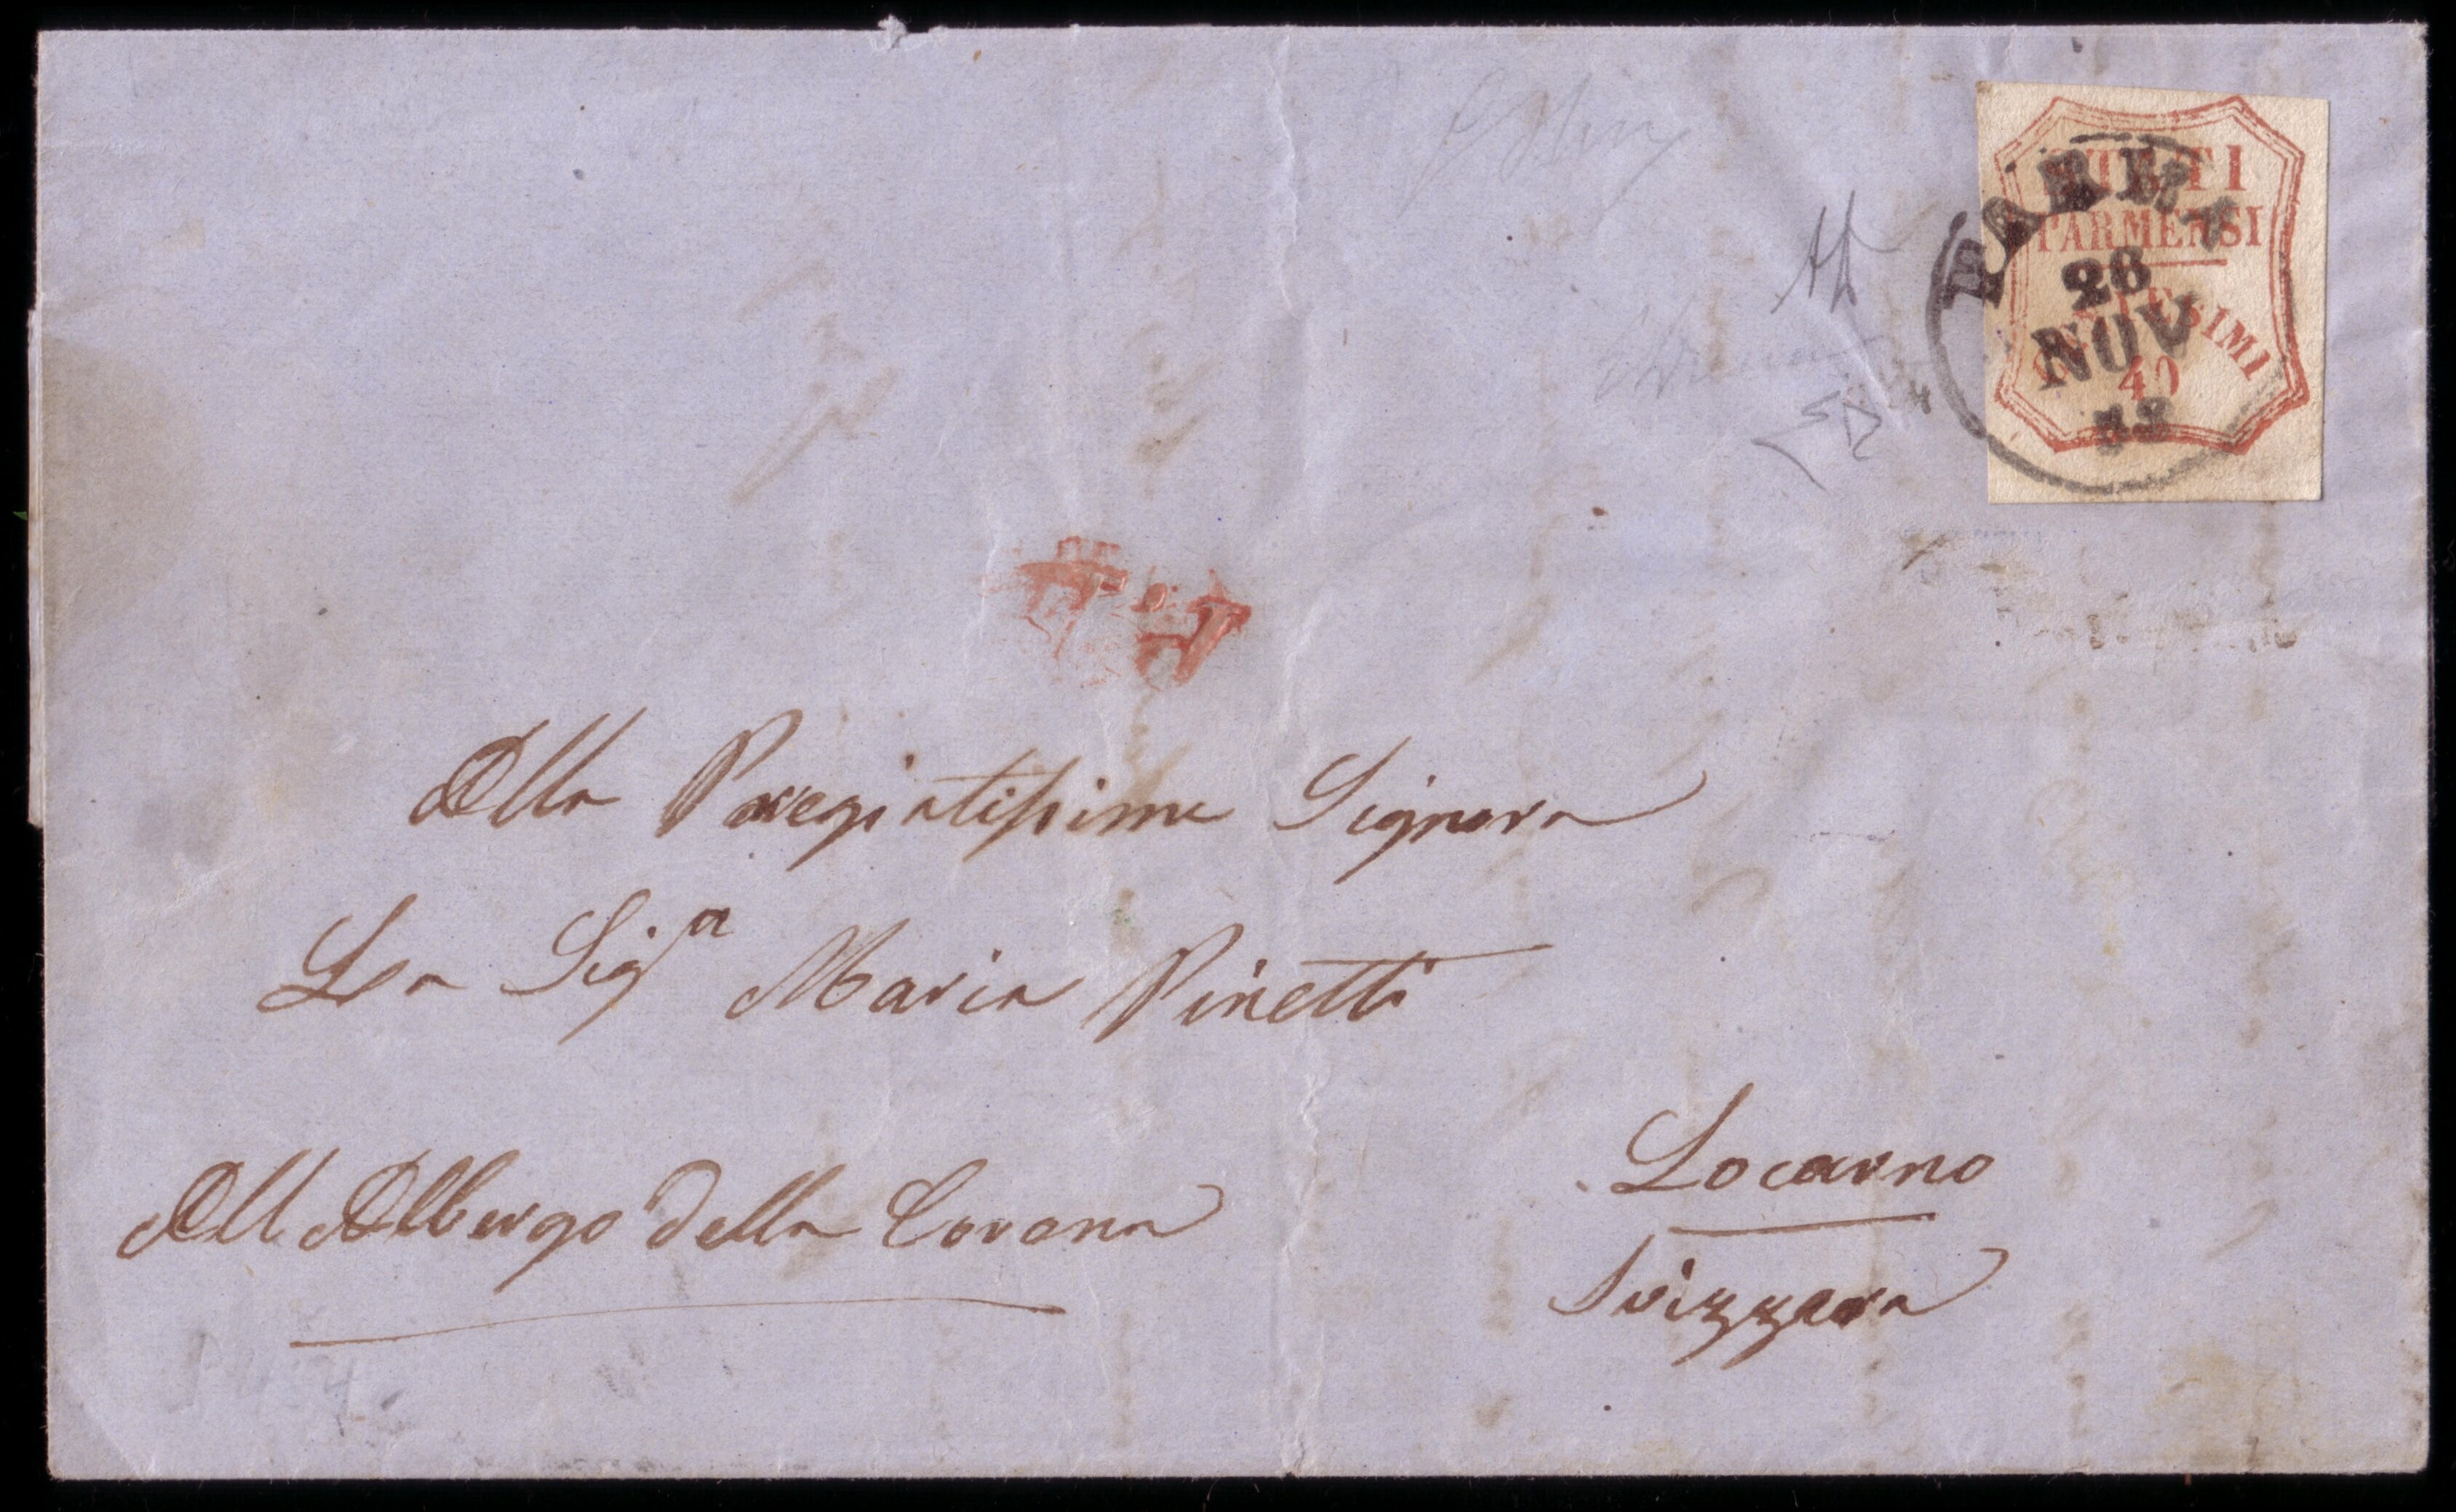 STATI
PARMENSI
CENTESIMI
40
PARMA
28
NOV
P.D.
Alla Pregiatissima Signora
La Sig.a Maria Pinetti
All Albergo della Corona
Locarno
Svizzera